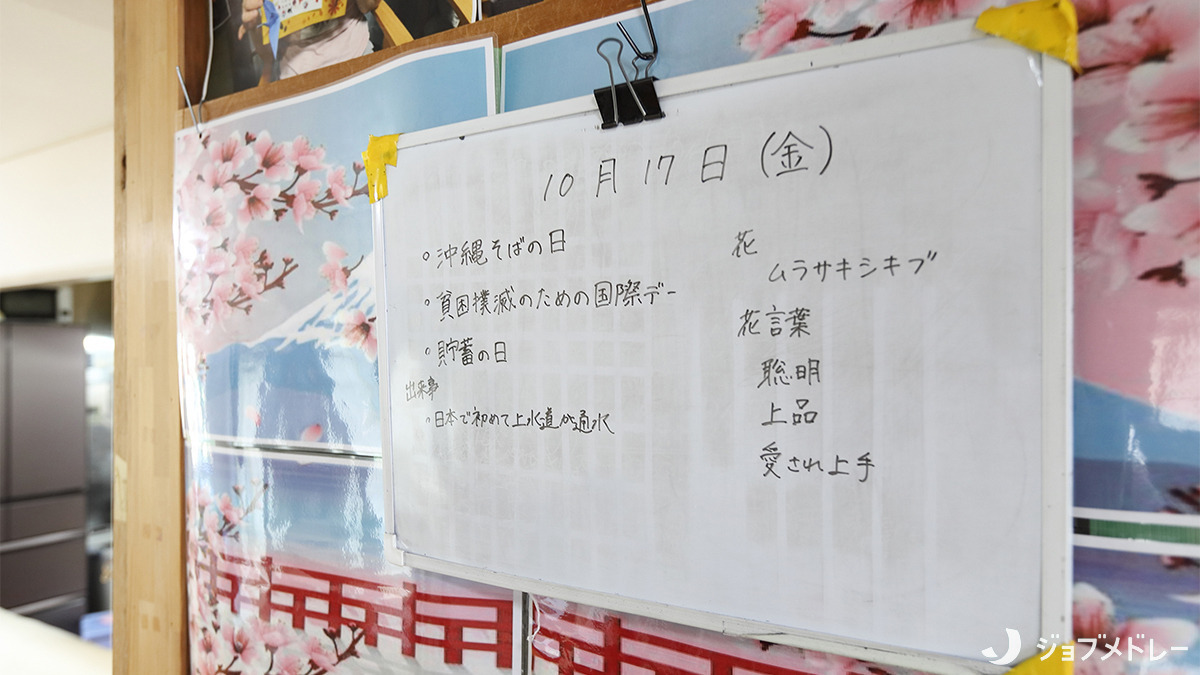 10月17日(金)
○沖縄そばの日
○貧困撲滅のための国際デー
○貯蓄の日
出来事
○日本で初めて上水道が通水
花
ムラサキシキブ
花言葉
聡明
上品
愛され上手
ジョブメドレー